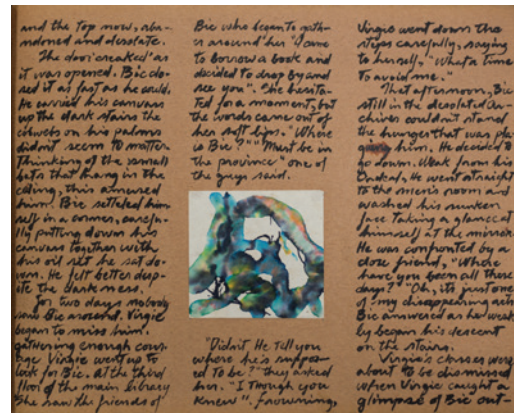 and the top now, aba-
ndoned and desolate.
The door creaked as
it was opened. Bic clo-
sed it as fast as he could.
He carried his canvass
up the dark stairs the
cobwebs on his palms
didnt seem to matter.
Thinking of the small
bats that hang in the
ceiling, this amused
him. Bic settled him-
self in a corner, carefu-
lly putting down his
canvass together with
his oil set he sat do-
wn. He felt better desp-
ite the darkness.
For two days nobody
saw Bic around. Virgie
began to miss him.
gathering enough cour-
age Virgie went up to
look for Bic. At the third
floor of the main library
She saw the friends of
Bic who began to gath-
er around her "I came
to borrow a book and
decided to drop by and
see you". She hesita-
ted for a moment, but
the words came out of
her soft lips. "Where
is Bic?" "Must be in
the province" one of
the guys said.
"Didnt He tell you
where he's suppos-
ed to be?" they asked
her. "I though you
knew". Frowning,
Virgie went down the
steps carefully, saying
to herself, "What a time
to avoid me."
That afternoon, Bic
still in the desolated ar-
chives couldnt stand
the hunger that was pla-
him. He decided to
go down. Weak from his
Ordeal, He went straight
to the men's room and
washed his sunken
face taking a glance at
himself at the mirror.
He was confronted by a
close friend, "Where
have you been all these
days?" "Oh, its just one
of my disappearing acts
Bic answered as he weak-
ly began his descent
on the stairs.
Virginia's classes were
about to be dismissed
when Virgie caught a
glimpse of Bic out-